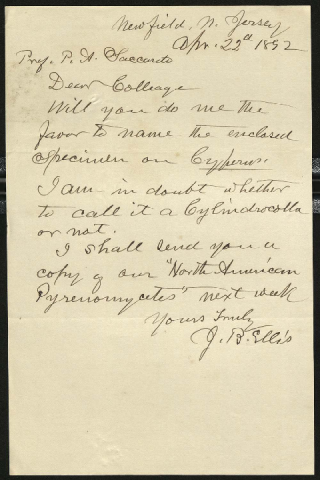 Newfield, N. Jersey
Apr. 22d 1892
Prof. P. A. Saccardo
Dear Colleage
Will you do me the
favor to name the enclosed
specimen on Cyperus.
I am in doubt whether
to call it a Cylindrocolla
or not.
I shall send you a
copy of our "North American
Pyrenomycetes" next week
Yours Truly
J. B. Ellis